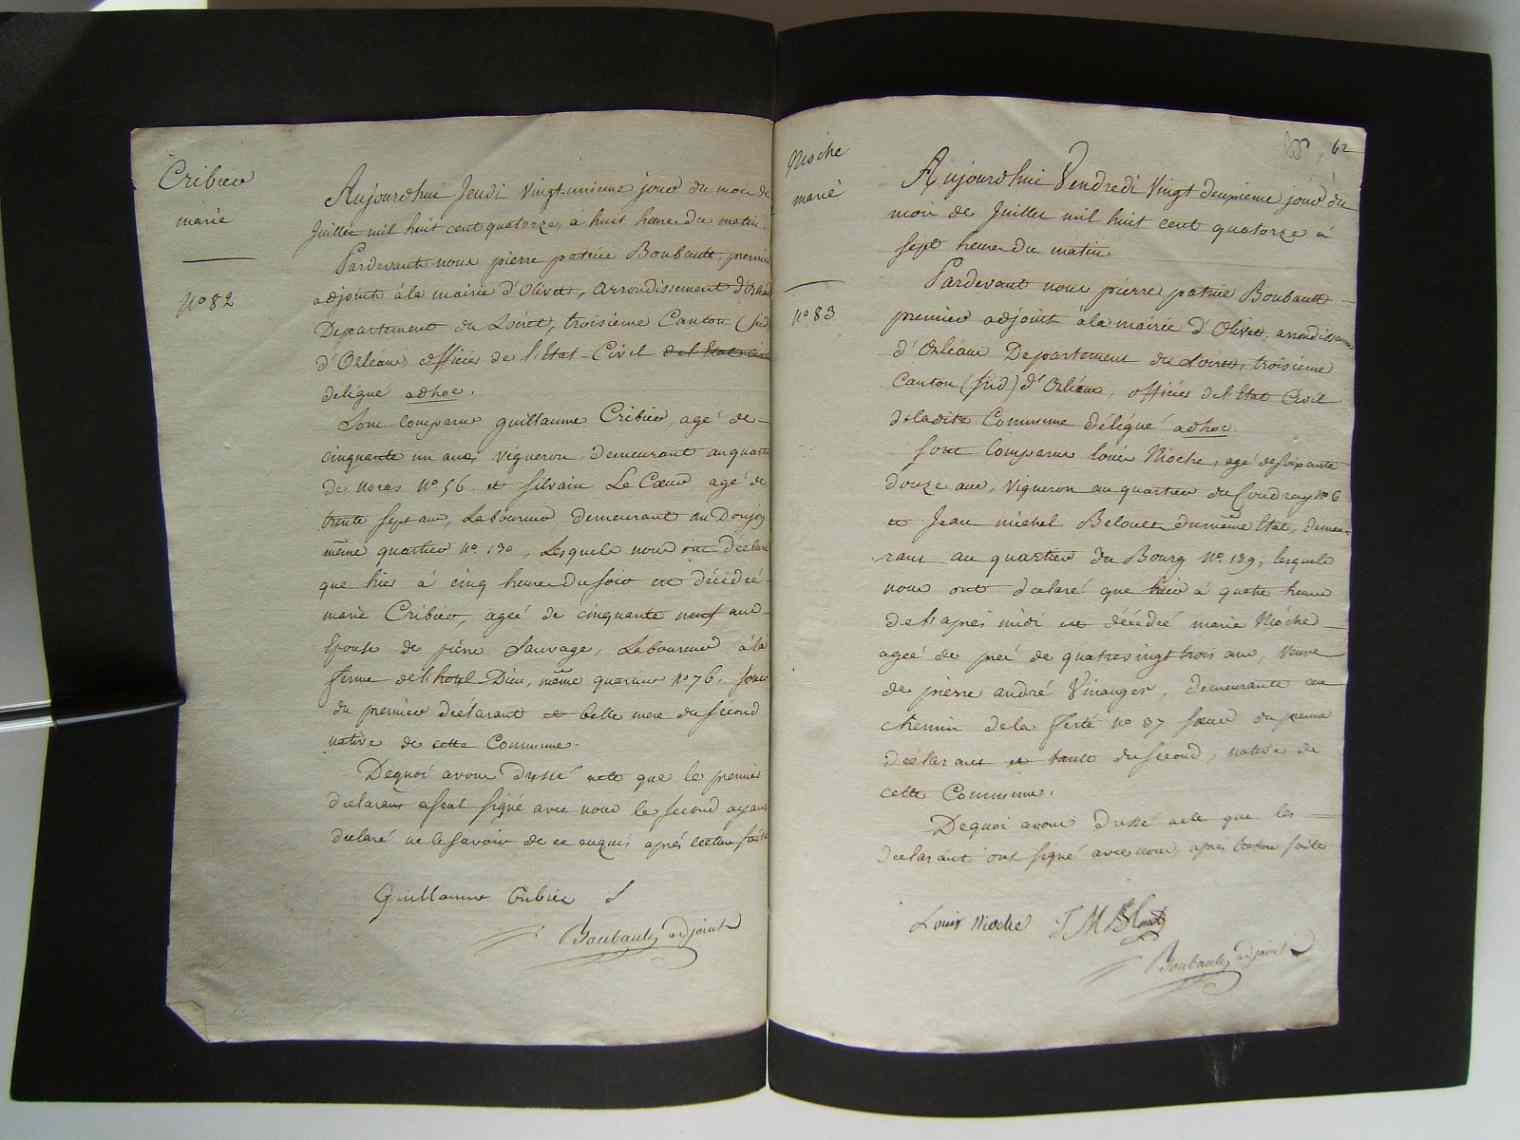 Cribier
marie
N° 82
Aujourd'hui Jeudi Vingt unieme jour du mois de
Juillet mil huit cent quatorze, a huit heure du matin.
Pardevant nous pierre patrice Boubault, premier
adjoint à la mairie d'Olivet, arrondissement d'Orléans
Departement du Loiret, troisieme Canton (sud)
d'Orléans officier de l'Etat-Civil de l'Etat civil
délégué adhoc.
Sont comparus guillaume Cribier, agé de
cinquante un ans, vigneron demeurant au quartier
de Noras N° 56 et Silvain Le Cœur, agé de
trente sept ans, Laboureur demeurant au Donjon
même quartier n° 130, Lesquels nous ont déclaré
que hier à cinq heure du soir est décédée
marie Cribier, ageé de cinquante neuf ans
Epouse de piere Sauvage, Laboureur à la
ferme de l'hotel-Dieu, même quartier N° 76, soeur
du premier declarant et belle mere du second
native de cette Commune.
Dequoi avons dressé acte que le premier
declarant a seul signé avec nous le second ayant
declaré ne le savoir de ce enquis après lecture faite
Guillaume Cribier
Boubault adjoint
62
Nioche
marie
N° 83
Aujourd'hui Vendredi Vingt deuxieme jour du
mois de Juillet mil huit cent quatorze à
sept heure du matin
Pardevant nous pierre patrice Boubault
premier adjoint à la mairie d'Olivet, arrondissement
d'Orléans Departement du Loiret, troisieme
Canton (sud) d'Orléans, officier de l'Etat Civil
de ladite Commune délégué adhoc
Sont Comparus louis Nioche, agé de soixante
douze ans, vigneron au quartier du Coudray N° 6
et Jean michel Belouet du même Etat, demeu-
rant au quartier du Bourg N° 139, lesquels
nous ont declaré que hier à quatre heure
de l'après midi est décédée marie Nioche
ageé de prés de quatrevingt trois ans, veuve
de pierre andré Vinauger, demeurante au
chemin de la ferté n° 37 soeur du premier
déclarant et tante du second, native de
cette Commune.
Dequoi avons dressé acte que les
declarants ont signé avec nous, après lecture faite
Louis Nioche J M Blouet
Boubault adjoint